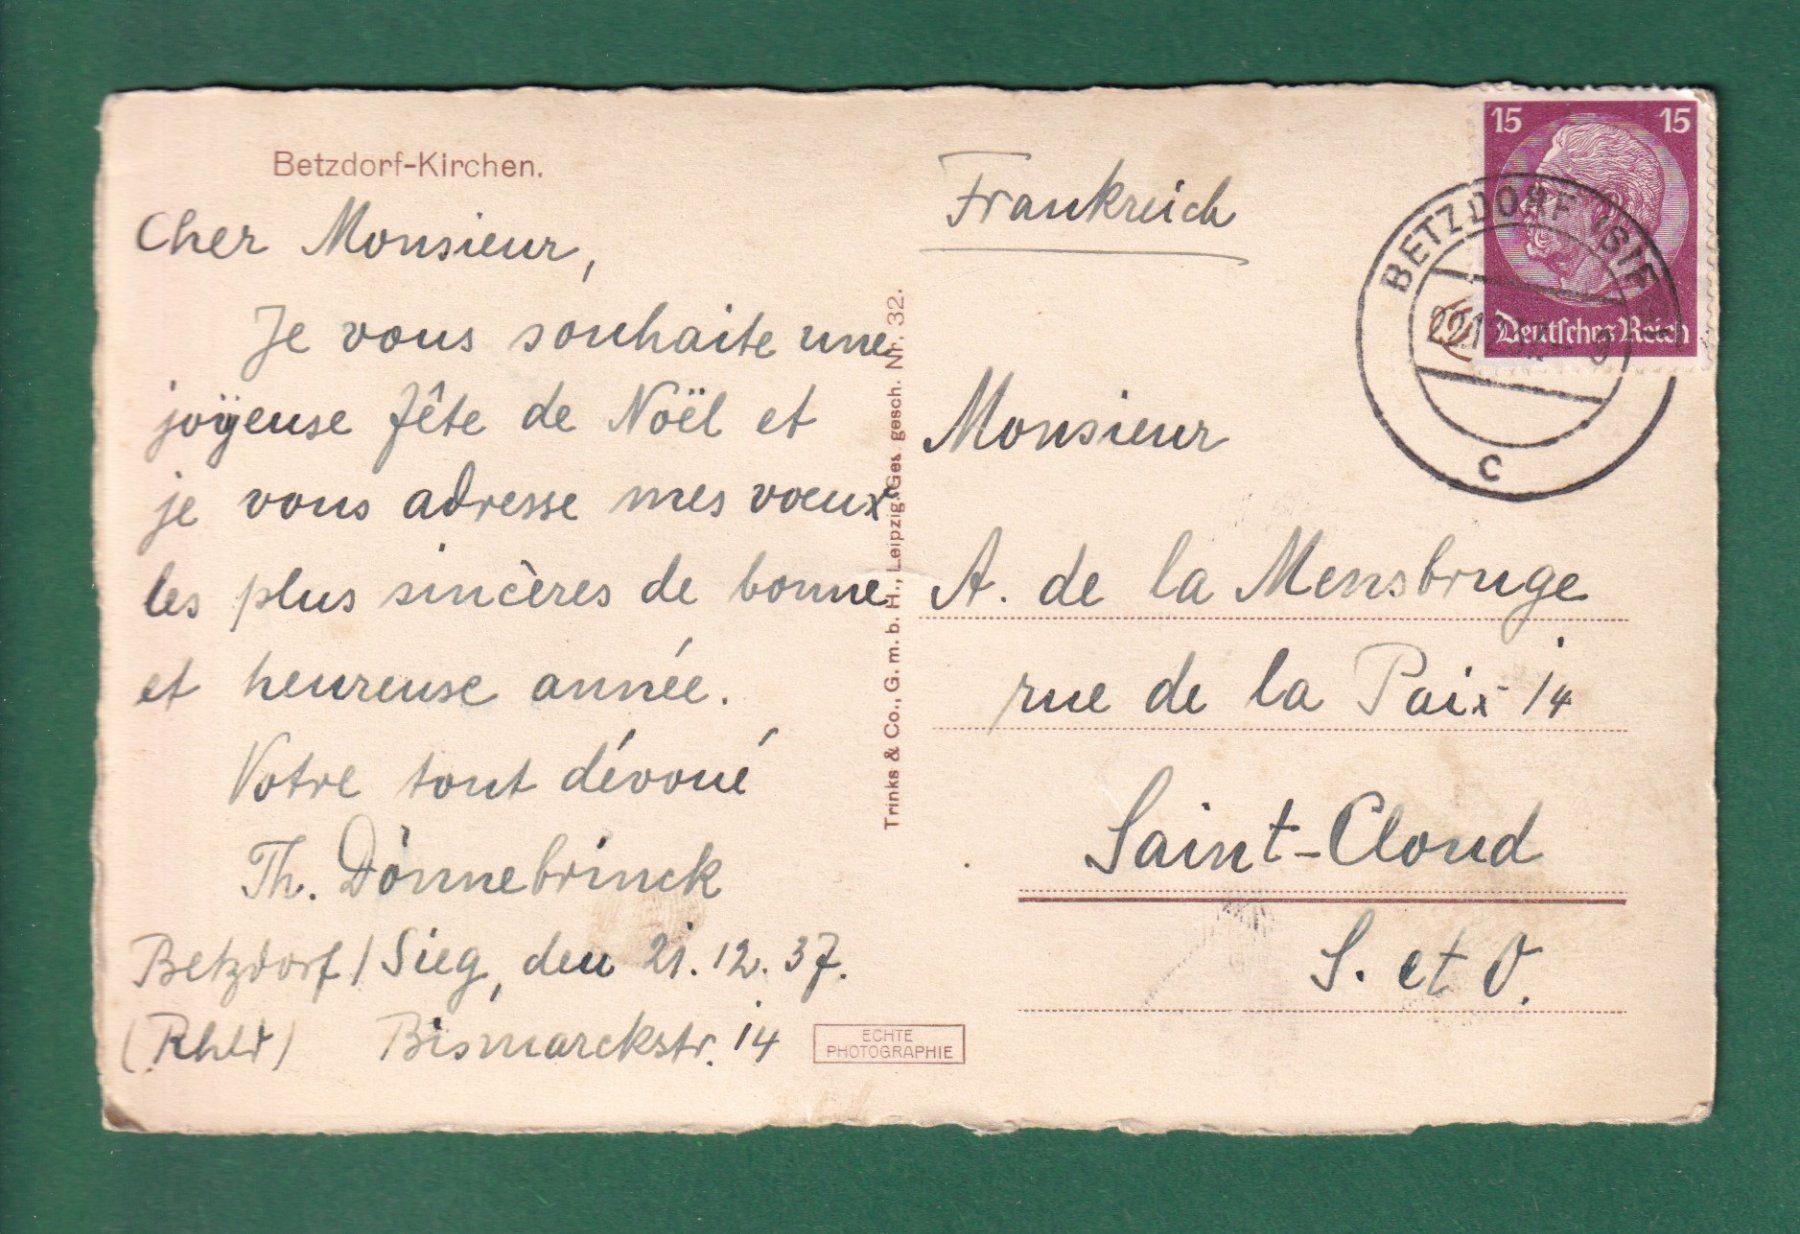 Betzdorf-Kirchen.
Cher Monsieur,
Je vous souhaite une
joÿeuse fête de Noël et
je vous adresse mes voeux
les plus sincères de bonne
et heureuse année.
Votre tout dévoué
Th. Dönnebrinck
Betzdorf/Sieg, den 21.12.37.
(Rhld) Bismarckstr. 14
Trinks & Co., G. m. b. H., Leipzig. Ges. gesch. Nr. 32.
ECHTE
PHOTOGRAPHIE
Frankreich
15 15
Deutsches Reich
BETZDORF (SIEG)
22.12.37
c
Monsieur
A. de la Mensbruge
rue de la Paix 14
Saint-Cloud
S. et O.